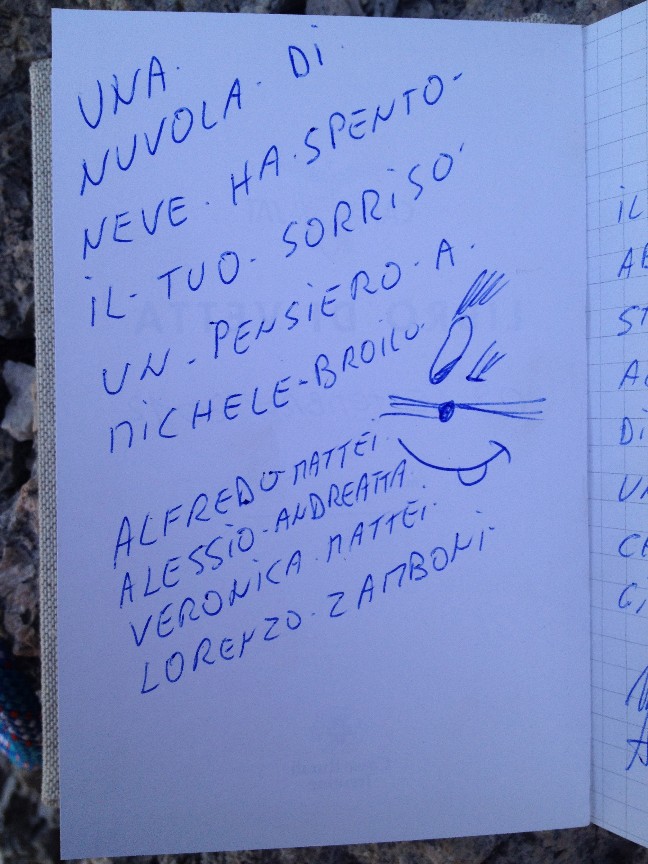 UNA.
NUVOLA. Di
NEVE. HA. SPENTO-
iL- TUO- SORRiSO'
UN- PENSiERO- A.
MiCHELE-BROiLO
ALFREDO MATTEi.
ALESSiO-ANDREATTA.
VERONiCA. MATTEi.
LORENZO. ZAMBONi.
iL
Di